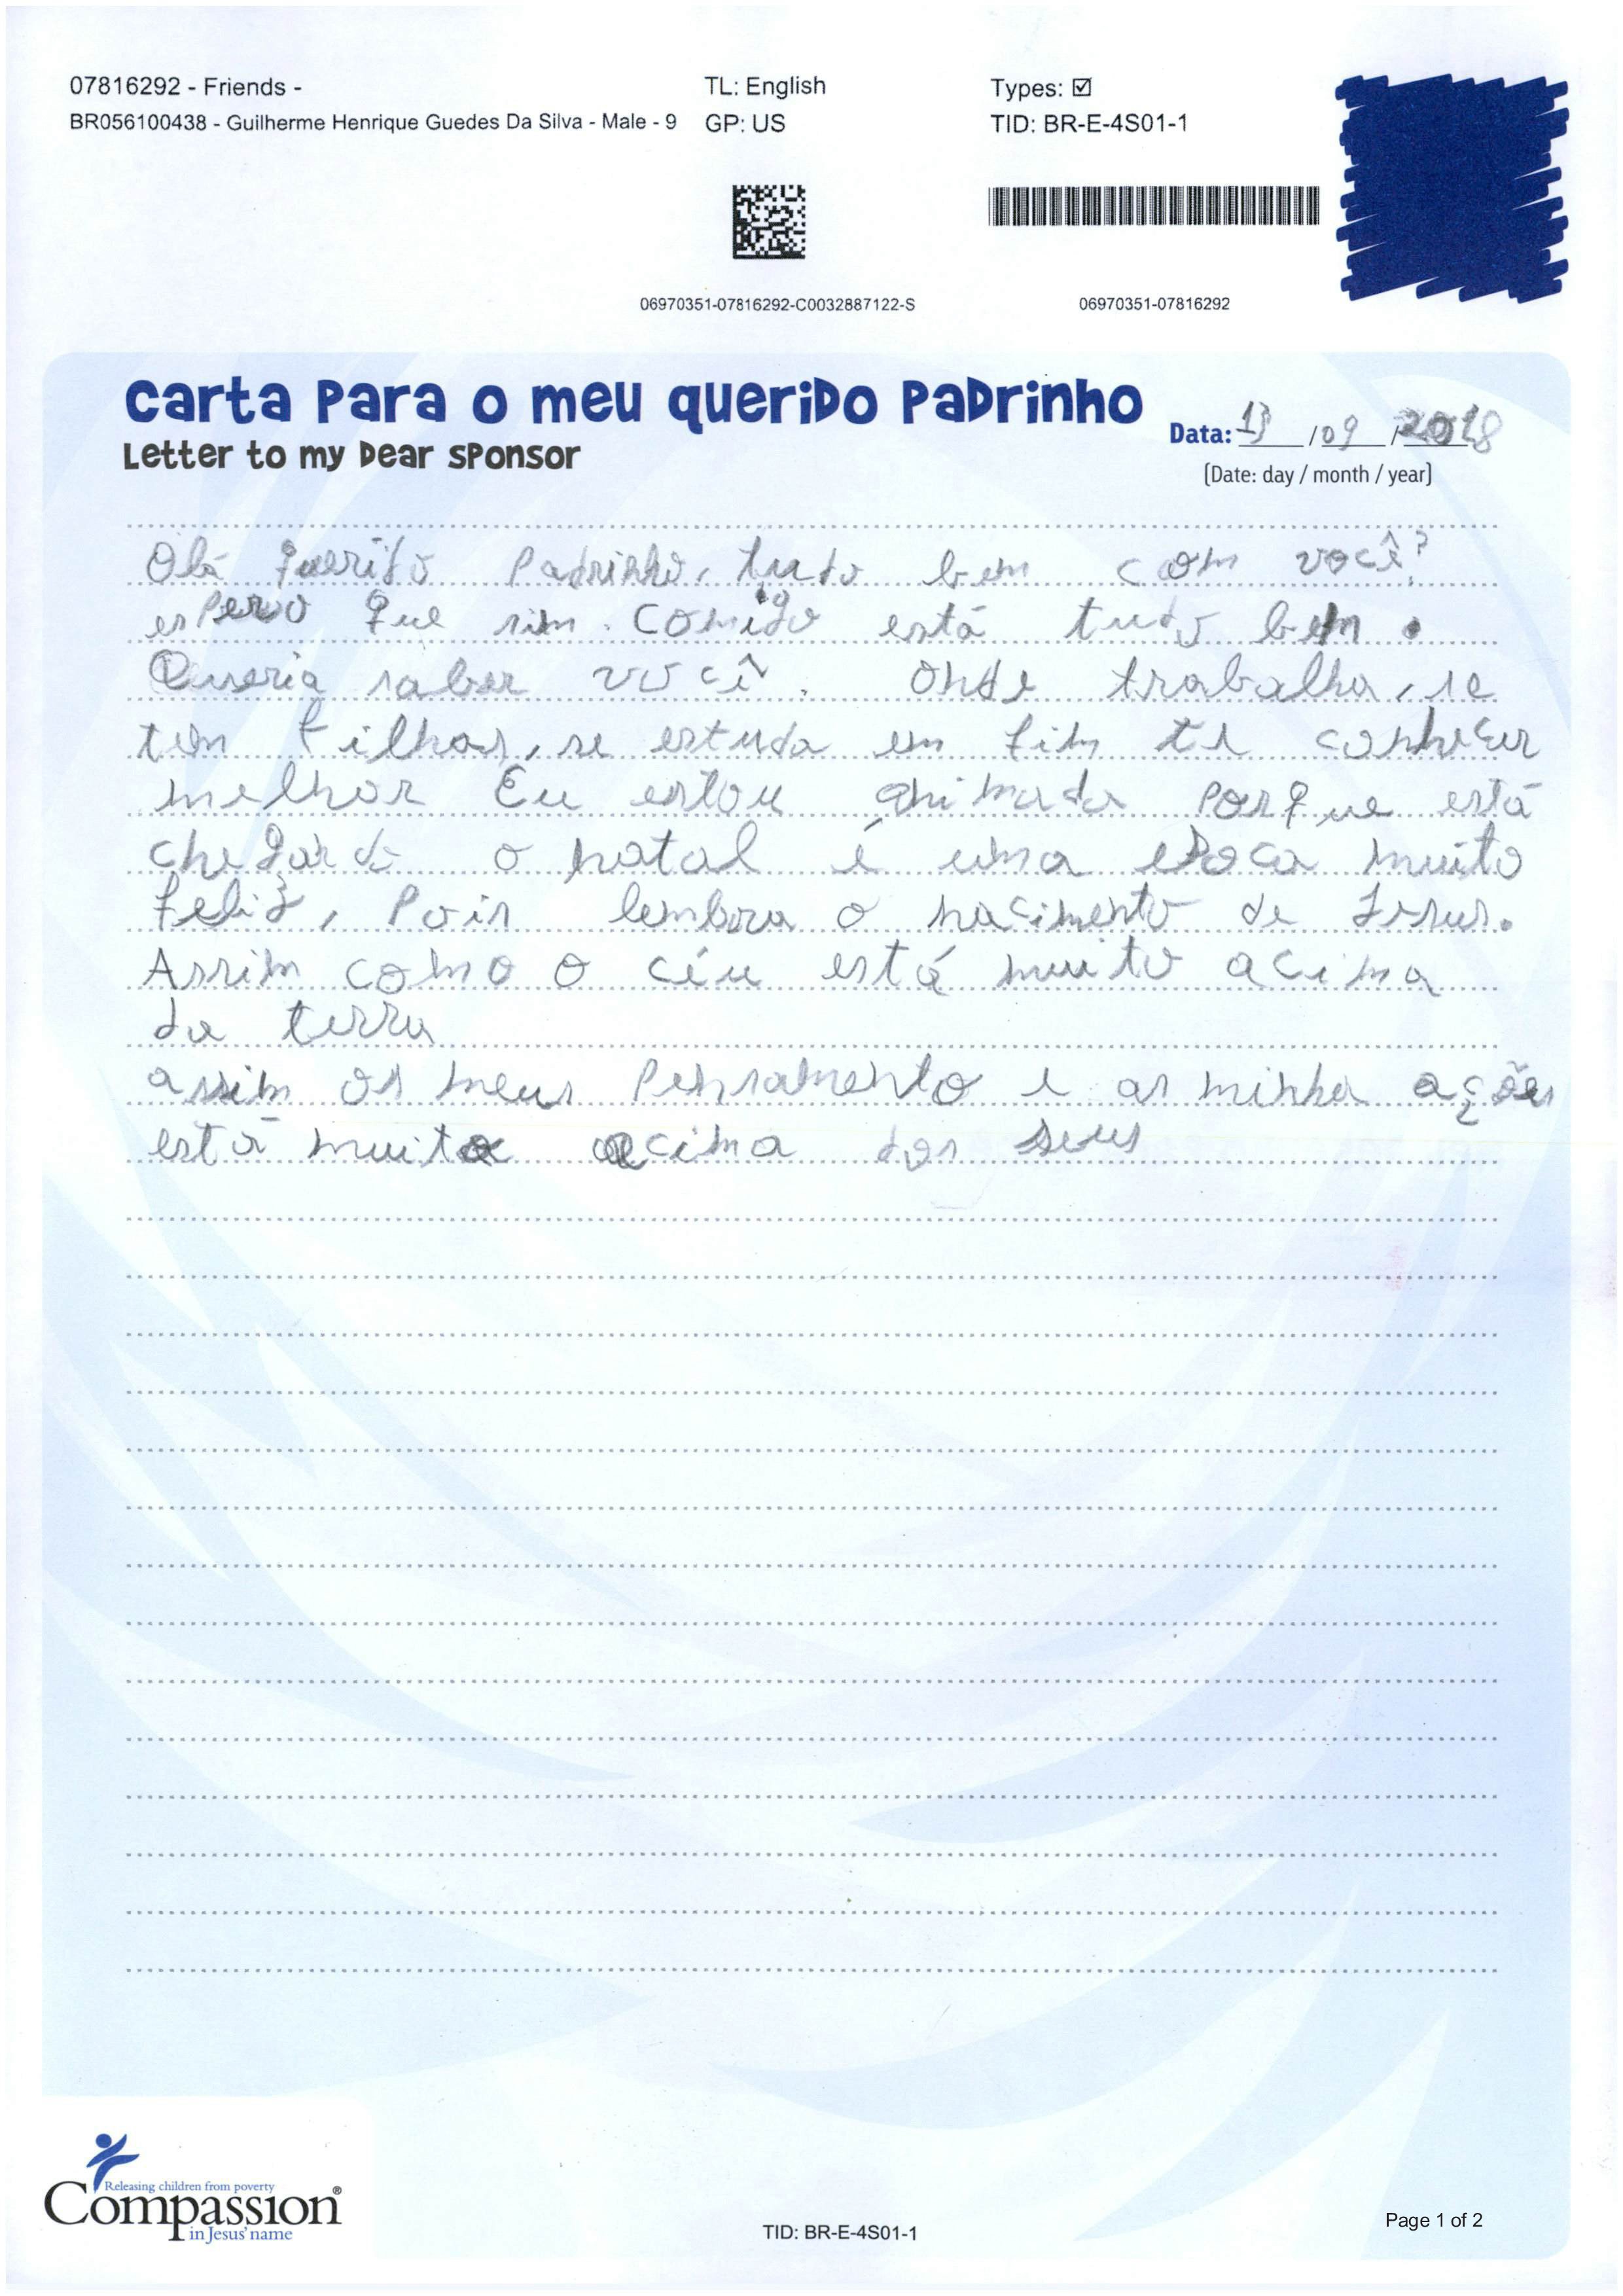 07816292 - Friends -
TL: English
Types: ☑
BR056100438 - Guilherme Henrique Guedes Da Silva - Male - 9
GP: US
TID: BR-E-4S01-1
06970351-07816292-C0032887122-S
06970351-07816292
Carta para o meu querido padrinho
Letter to my dear sponsor
Data: 13 /09 /2018
(Date: day / month / year)
Olá querido Padrinho, tudo bem com você?
espero que sim. Comigo está tudo bem.
Queria saber você. onde trabalha, se
tem filhos, se estuda em fim te conhecer
melhor Eu estou animado porque está
chegando o natal é uma epoca muito
feliz, Pois lembra o nacimento de Jesus.
Assim como o céu está muito acima
da terra
assim os meus Pensamento e as minha ações
está muito acima dos seus
Releasing children from poverty
Compassion®
in Jesus' name
TID: BR-E-4S01-1
Page 1 of 2